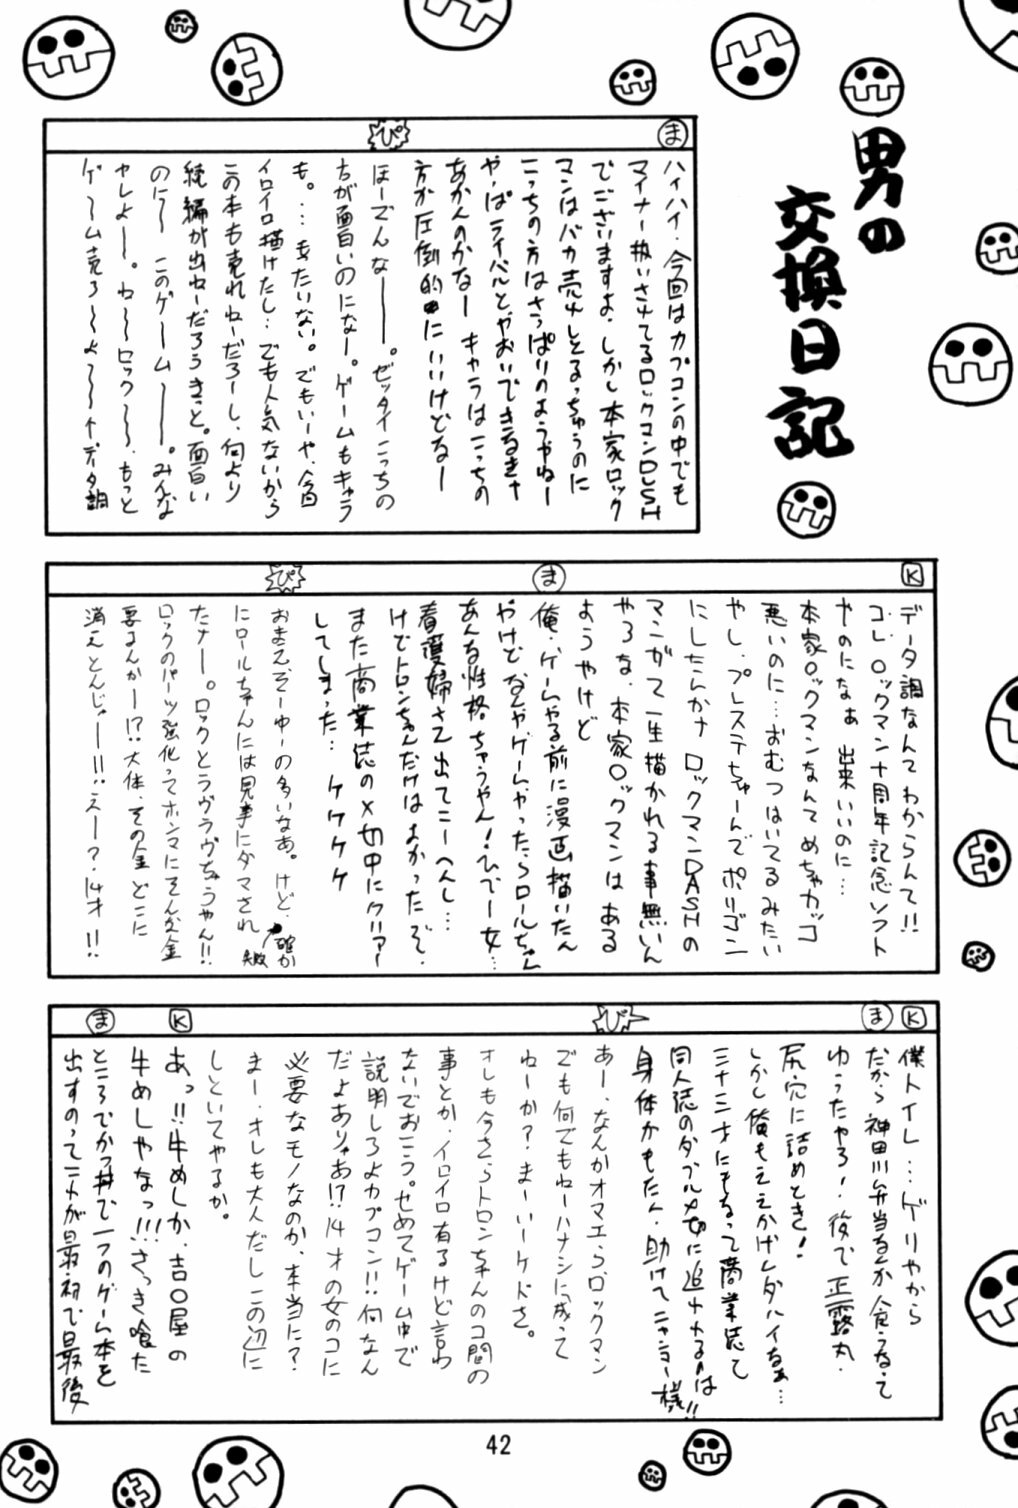 男の
交換日記
ま
ハイハイ、今回はカプコンの中でも
マイナー扱いされてるロックマンDASH
でございますよ。しかし本家ロック
マンはバカ売れしとるっちゅうのに
こっちの方はさっぱりのようやねー
やっぱライバルとやおいできるきゃ
あかんのかなー キャラはこっちの
方が圧倒的にいいけどなー
ぴ
ほーでんなー。ゼッタイこっちの
ちが面白いのになー。ゲームもキャラ
も。…もったいない。でもいーや、今回
イロイロ描けたし…でも人気ないから
この本も売れねーだろーし、何より
続編が出ねーだろうきっと。面白い
のに〜 このゲ〜ム〜。みんな
ヤレよ〜。ね〜ロック〜、もっと
ゲ〜ム売ろ〜よ〜〜↑データ調
K
データ調なんてわからんて!!
コレ、ロックマン十周年記念ソフト
やのになぁ 出来いいのに…
本家ロックマンなんてめちゃカッコ
悪いのに…おむつはいてるみたい
やし、プレステちゃーんでポリゴン
にしたんかナ ロックマンDASHの
マンガて一生描かれる事無いん
やろな、本家ロックマンはある
ようやけど
ま
俺、ゲームやる前に漫画描いたん
やけど なんやゲームやったらロールちゃん
あんな性格ちゃうやん!ひでー女…
看護婦さん出てこーへんし…
けどトロンちゃんだけはよかったぞ。
また商業誌の〆切中にクリアー
してしまった… ケケケケ
ぴ
おまえ、そーゆーの多いなあ。けど、確か
にロールちゃんには見事にダマされ
たナー。ロックとラヴラヴちゃうやん!!
ロックのパーツ強化ってホンマにそんな金
要るんかー!?大体、その金どこに
消えとんじゃー!!…えー?14才!!
K
僕トイレ…ゲリやから
ま
だから神田川弁当なんか食うなって
ゆったやろ!、後で正露丸、
尻穴に詰めとき!
しかし俺もええかげんダハイなぁ…
三十三才にもなって商業誌て
同人誌のダブル〆切に追われるのは!!
身体がもたん、助けてニャンコー様
ぴ
あー、なんかオマエら、ロックマン
でも何でもねーハナシに成って
ねーか?まーいーケドさ。
オレも今さらトロンちゃんのコ間の
事とか、イロイロ有るけど言わ
ないでおこう。せめてゲーム中で
説明しろよカプコン!!何なん
だよありゃあ!?14才の女のコに
必要なモノなのか、本当に?
まー、オレも大人だしこの辺に
しといてやるか。
K
あっ!!牛めしか、吉〇屋の
牛めしやなっ!!!さっき喰た
ま
ところでかつ丼で一つのゲーム本を
出すのってこれが最初で最後
42